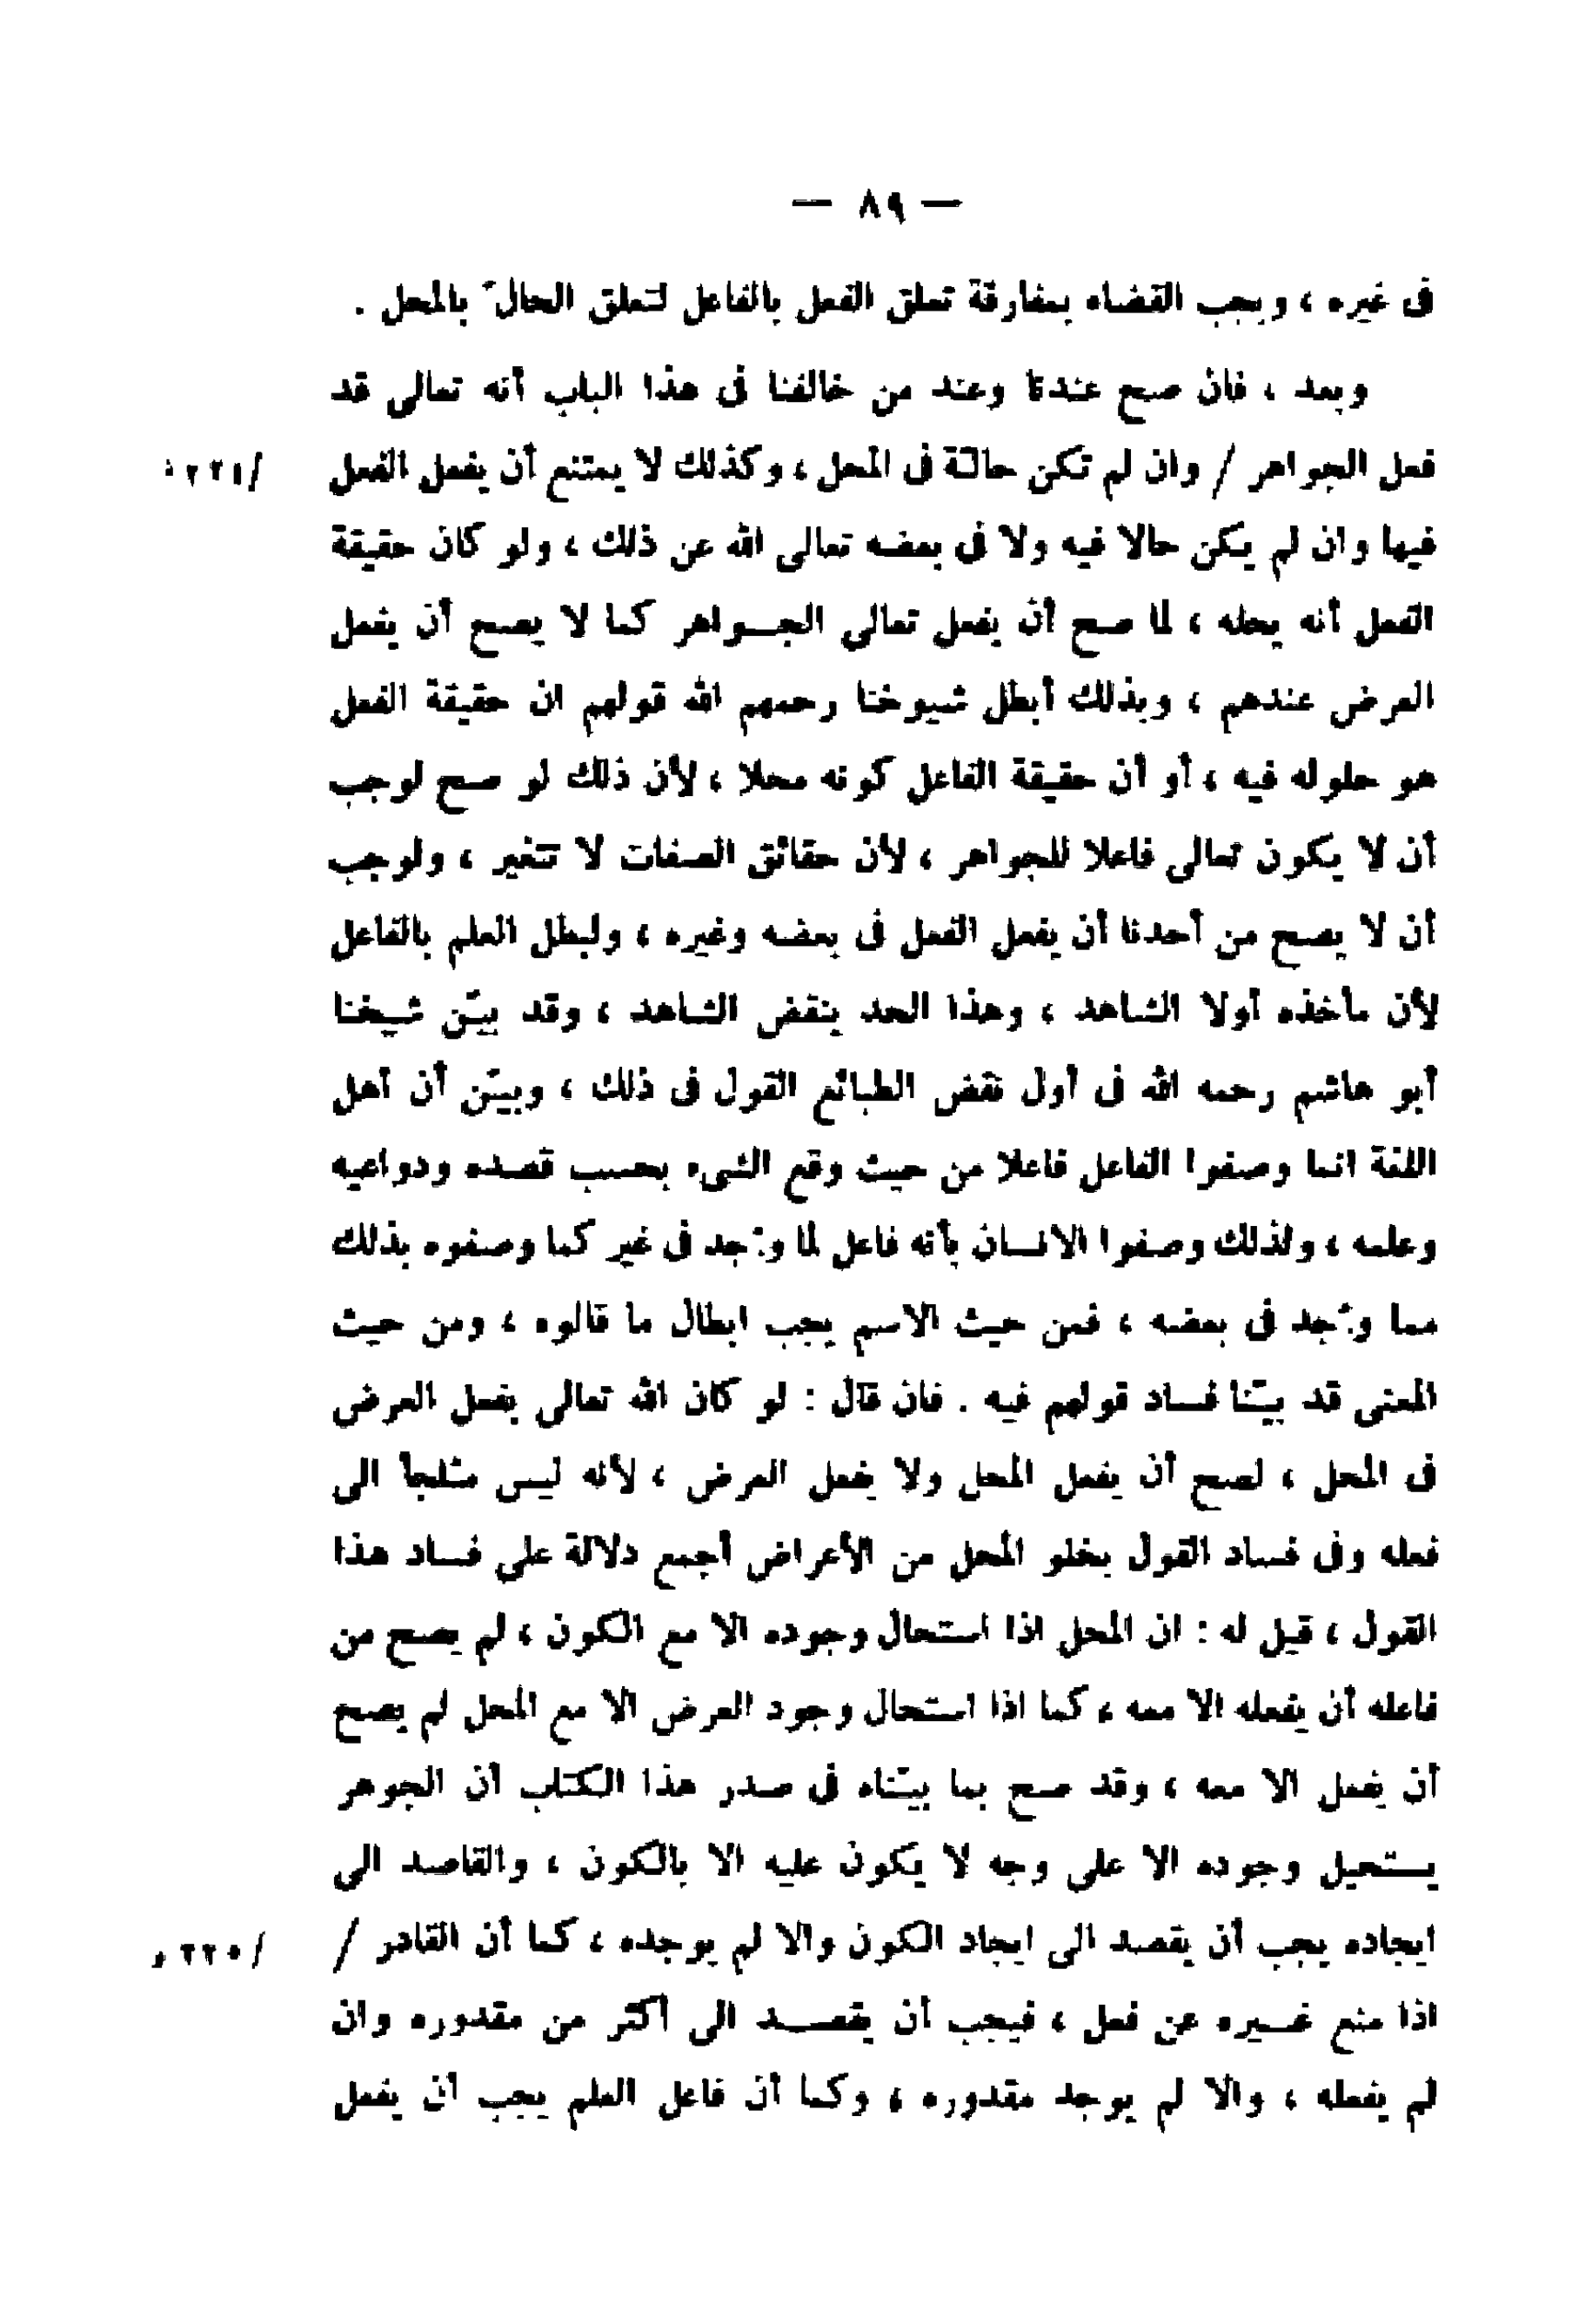 — ٨٩ —
فى غيره ، ويجب القضاء بمفارقة تعلق الفعل بالفاعل لتعلق الحالّ بالمحل .
وبعد ، فان صح عندنا وعند من خالفنا فى هذا الباب أنه تعالى قد
فعل الجواهر / وان لم تكن حالّة فى المحل ، وكذلك لا يمتنع أن يفعل الفعل
فيها وان لم يكن حالا فيه ولا فى بعضه تعالى الله عن ذلك ، ولو كان حقيقة
الفعل أنه يحله ، لما صح أن يفعل تعالى الجواهر كما لا يصح أن يفعل
العرض عندهم ، وبذلك أبطل شيوخنا رحمهم الله قولهم ان حقيقة الفعل
هو حلوله فيه ، أو أن حقيقة الفاعل كونه محلا ، لأن ذلك لو صح لوجب
أن لا يكون تعالى فاعلا للجواهر ، لأن حقائق الصفات لا تتغير ، ولوجب
أن لا يصح من أحدنا أن يفعل الفعل فى بعضه وغيره ، ولبطل العلم بالفاعل
لأن مأخذه أولا الشاهد ، وهذا الحد ينقض الشاهد ، وقد بيّن شيخنا
أبو هاشم رحمه الله فى أول نقض الطبائع القول فى ذلك ، وبيّن أن أهل
اللغة انما وصفوا الفاعل فاعلا من حيث وقع الشىء بحسب قصده ودواعيه
وعلمه ، ولذلك وصفوا الانسان بأنه فاعل لما وُجد فى غير كما وصفوه بذلك
مما وُجد فى بعضه ، فمن حيث الاسم يجب ابطال ما قالوه ، ومن حيث
المعنى قد بيّنا فساد قولهم فيه . فان قال : لو كان الله تعالى يفعل العرض
فى المحل ، لصح أن يفعل المحل ولا يفعل العرض ، لأنه ليس مثلجأ الى
فعله وفى فساد القول بخلو المحل من الأعراض أجمع دلالة على فساد هذا
القول ، قيل له : ان المحل اذا استحال وجوده الا مع الكون ، لم يصح من
فاعله أن يفعله الا معه ، كما اذا استحال وجود العرض الا مع المحل لم يصح
أن يفعل الا معه ، وقد صح بما بيّناه فى صدر هذا الكتاب أن الجوهر
يستحيل وجوده الا على وجه لا يكون عليه الا بالكون ، والقاصد الى
ايجاده يجب أن يقصد الى ايجاد الكون والا لم يوجده ، كما أن القادر /
/٢٢٥ و
اذا منع غيره عن فعل ، فيجب أن يقصد الى أكثر من مقدوره وان
لم يفعله ، والا لم يوجد مقدوره ، وكما أن فاعل العلم يجب أن يفعل